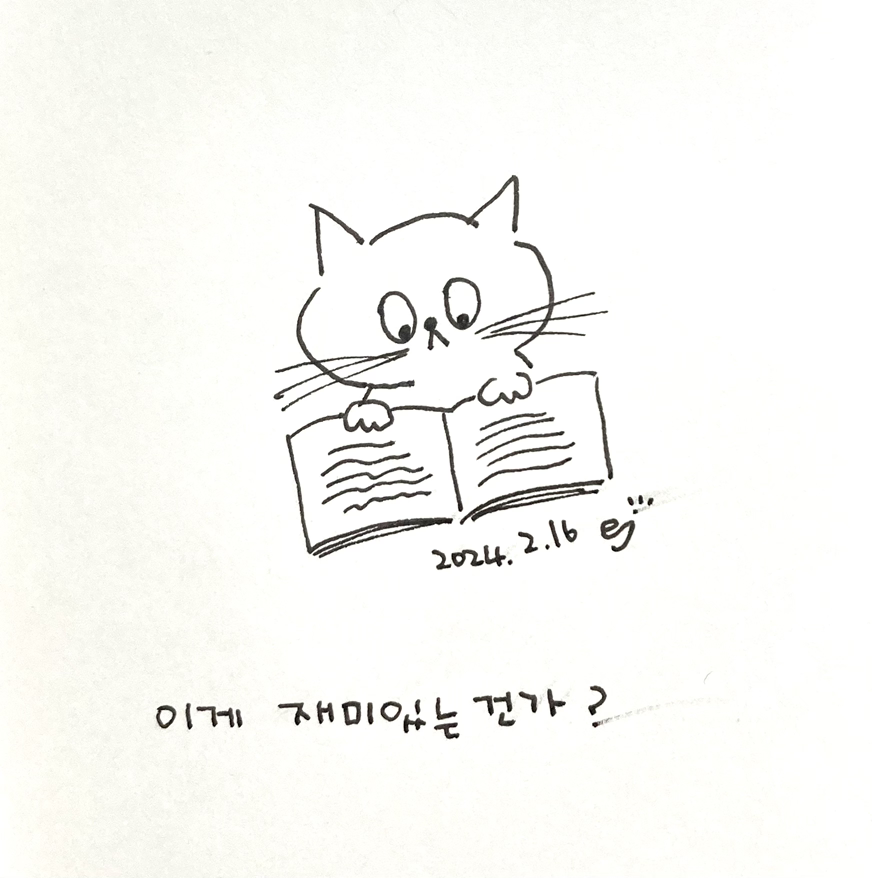 2024. 2.16 ej
이게 재미있는 건가 ?